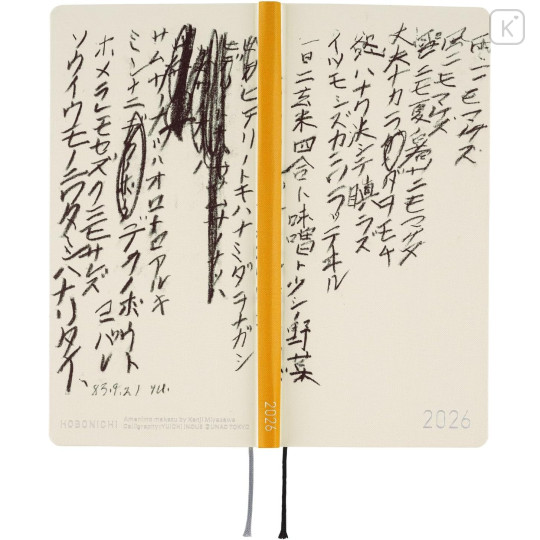 雨ニモマケズ
風ニモマケズ
雪ニモ夏ノ暑サニモマケヌ
丈夫ナカラダヲモチ
慾ハナク決シテ瞋ラズ
イツモシズカニワラッテヰル
一日二玄米四合ト味噌ト少シノ野菜
ヒデリノトキハナミダヲナガシ
サムサノナツハオロオロアルキ
ミンナニ デクノボウト
ヨバレ
ホメラレモセズクニモサレズ
ソウイウモノニワタシハナリタイ
83.9.21 yu.
HOBONICHI
Amenimo makezu by Kenji Miyazawa
Calligraphy: YUICHI INOUE ©UNAC TOKYO
2026
2026
K